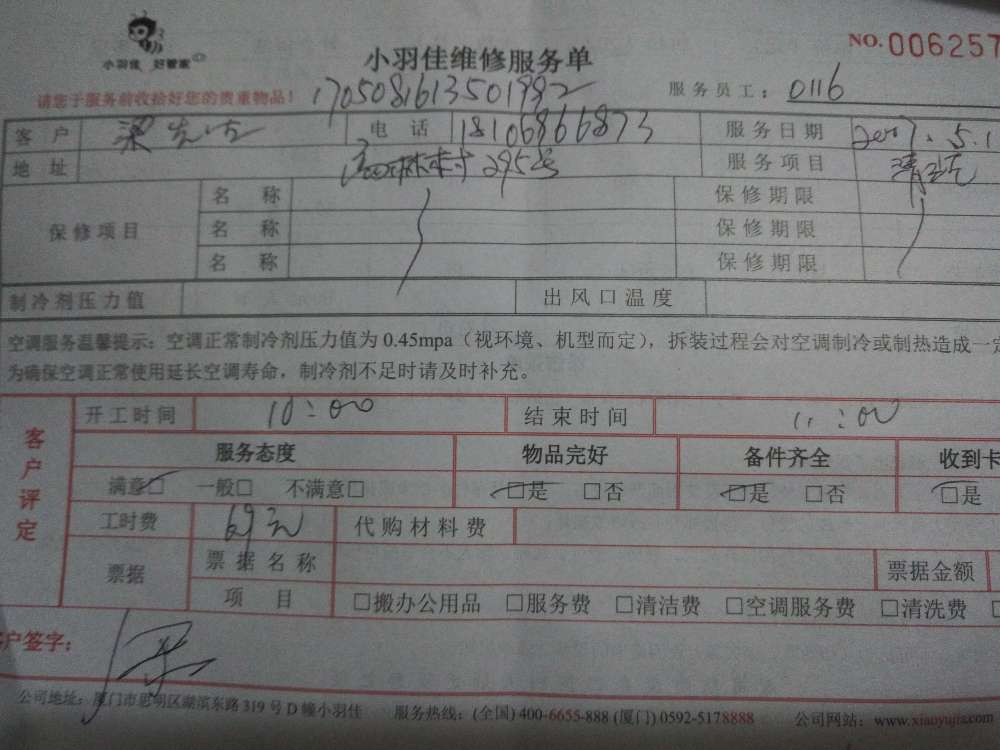 小羽佳 好管家
小羽佳维修服务单
NO. 006257
请您于服务前收拾好您的贵重物品!
1705081613501992
服务员工: 0116
客户 梁先生 电话 18106866873 服务日期 2017.5.1
地址 295号 服务项目 清洗
保修项目 名称 保修期限
名称 保修期限
名称 保修期限
制冷剂压力值 出风口温度
空调服务温馨提示: 空调正常制冷剂压力值为 0.45mpa（视环境、机型而定），拆装过程会对空调制冷或制热造成一定
为确保空调正常使用延长空调寿命，制冷剂不足时请及时补充。
客户评定
开工时间 10:00 结束时间 11:00
服务态度 物品完好 备件齐全 收到卡
满意□ 一般□ 不满意□ □是 □否 □是 □否 □是
工时费 69元 代购材料费
票据 票据名称 票据金额
项目 □搬办公用品 □服务费 □清洁费 □空调服务费 □清洗费
客户签字:
公司地址: 厦门市思明区湖滨东路 319 号 D 幢小羽佳 服务热线: (全国) 400-6655-888 (厦门) 0592-5178888 公司网站: www.xiaoyujia.com